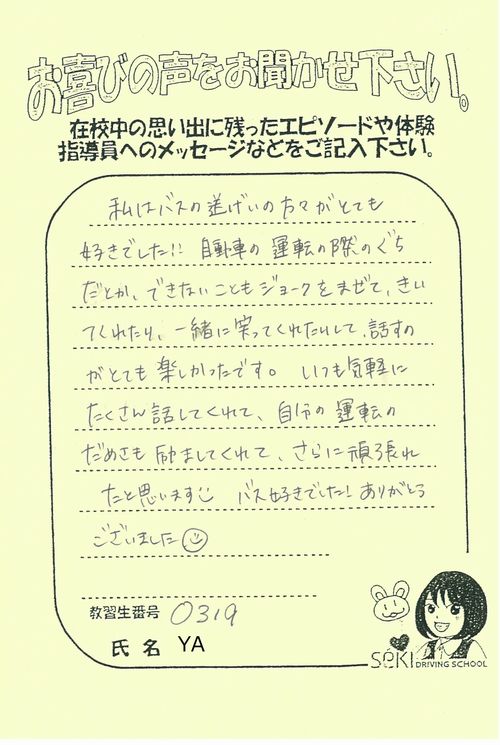 お喜びの声をお聞かせ下さい。
在校中の思い出に残ったエピソードや体験
指導員へのメッセージなどをご記入下さい。
私はバスの送げいの方々がとても
好きでした!! 自動車の運転の際のぐち
だとか、できないこともジョークをまぜて、きい
てくれたり、一緒に笑ってくれたりして、話すの
がとても楽しかったです。いつも気軽に
たくさん話してくれて、自分の運転の
だめさも励ましてくれて、さらに頑張れ
たと思います バス好きでした! ありがとう
ございました
教習生番号 0319
氏名 YA
SeKI DRIVING SCHOOL